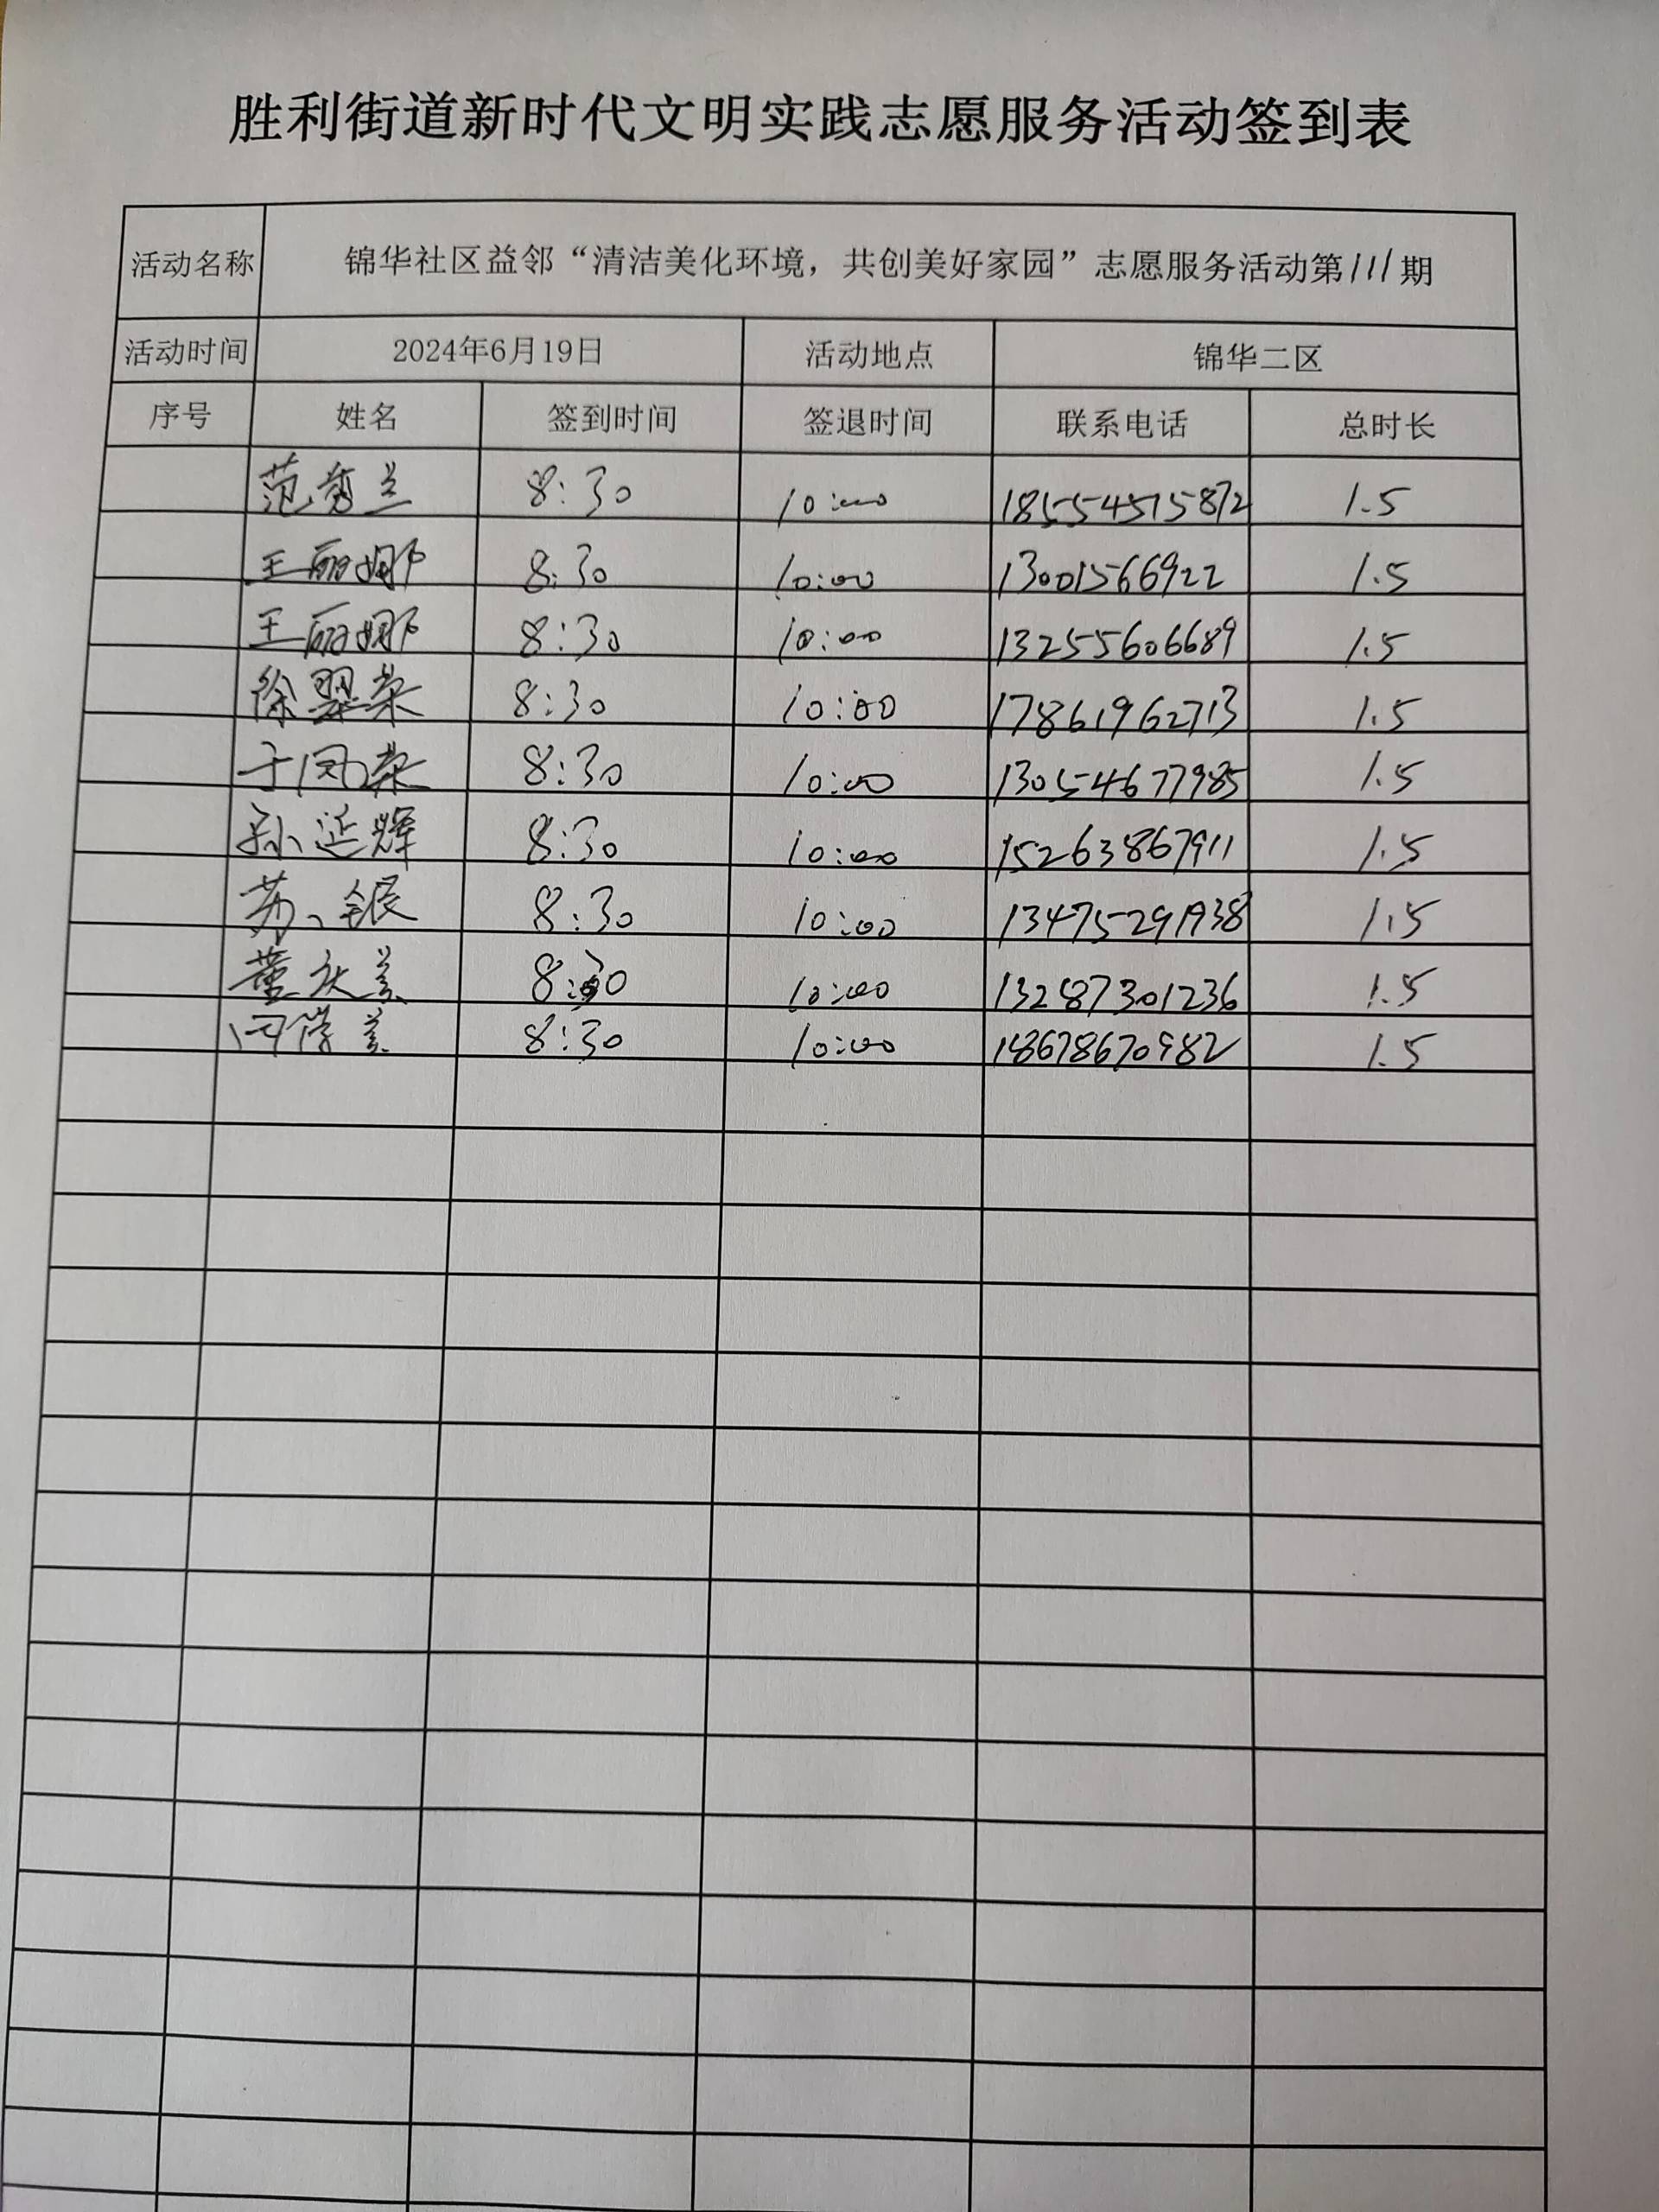 胜利街道新时代文明实践志愿服务活动签到表
活动名称 锦华社区益邻“清洁美化环境，共创美好家园”志愿服务活动第111期
活动时间 2024年6月19日 活动地点 锦华二区
序号 姓名 签到时间 签退时间 联系电话 总时长
范秀兰 8:30 10:00 18554515872 1.5
王丽娜 8:30 10:00 13001566922 1.5
王丽娜 8:30 10:00 13255606689 1.5
徐翠荣 8:30 10:00 17861962713 1.5
于凤荣 8:30 10:00 13054677985 1.5
孙延辉 8:30 10:00 15263867911 1.5
苏银 8:30 10:00 13475291938 1.5
董庆美 8:30 10:00 13287301236 1.5
闫美 8:30 10:00 18678670982 1.5